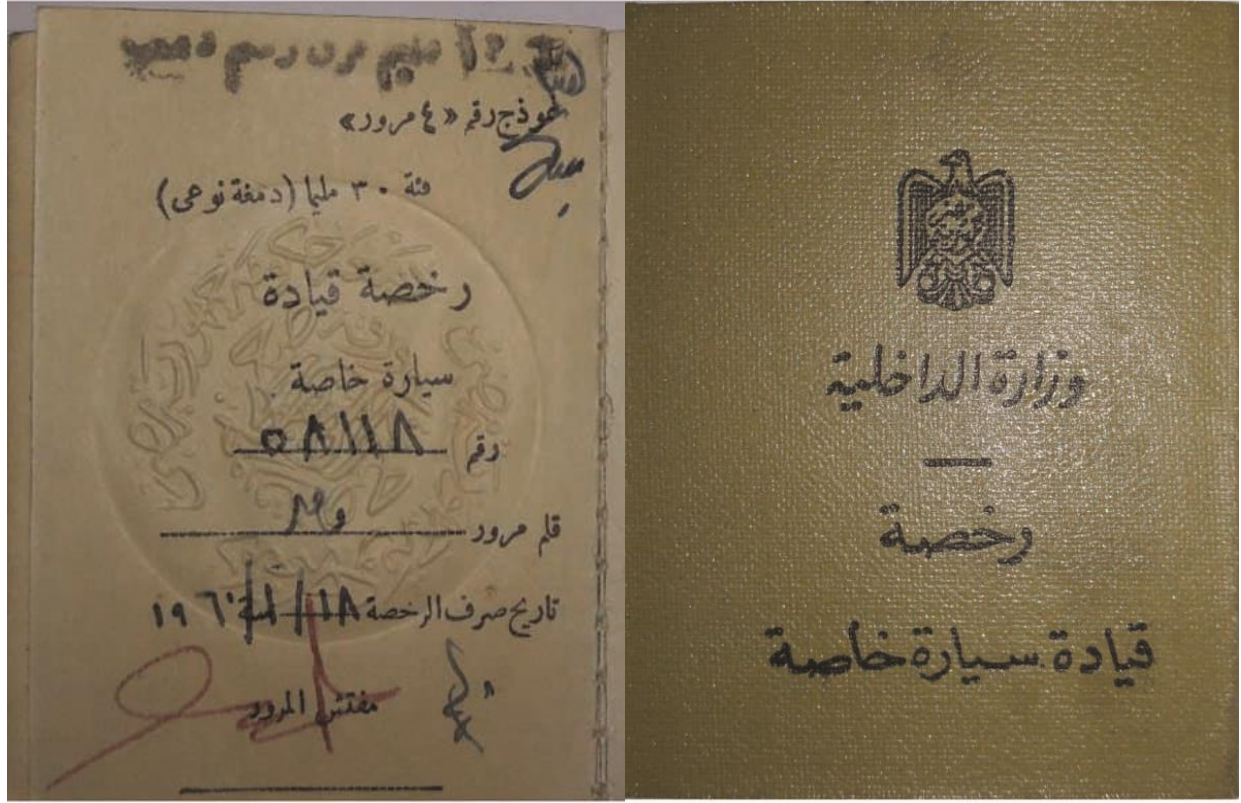 مليم من رسم دمغة
نموذج رقم «٤ مرور»
فئة ٣٠ مليما (دمغة نوعى)
رخصة قيادة
سيارة خاصة
رقم ٥٨١١٨
قلم مرور
تاريخ صرف الرخصة ١٨/١/سنة ١٩٦٠
مفتش المرور
وزارة الداخلية
رخصة
قيادة سيارة خاصة